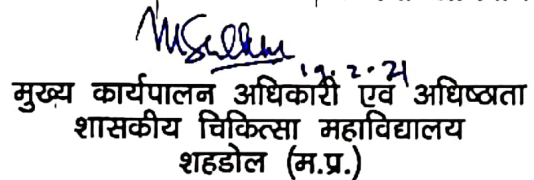 19.2.21
मुख्य कार्यपालन अधिकारी एवं अधिष्ठाता
शासकीय चिकित्सा महाविद्यालय
शहडोल (म.प्र.)